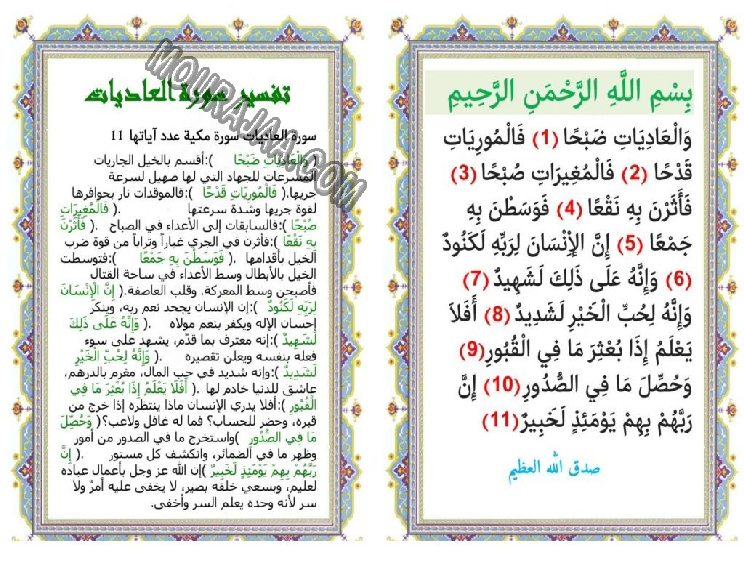 بِسْمِ اللَّهِ الرَّحْمَنِ الرَّحِيمِ
وَالْعَادِيَاتِ ضَبْحًا (1) فَالْمُورِيَاتِ
قَدْحًا (2) فَالْمُغِيرَاتِ صُبْحًا (3)
فَأَثَرْنَ بِهِ نَقْعًا (4) فَوَسَطْنَ بِهِ
جَمْعًا (5) إِنَّ الْإِنْسَانَ لِرَبِّهِ لَكَنُودٌ
(6) وَإِنَّهُ عَلَى ذَلِكَ لَشَهِيدٌ (7)
وَإِنَّهُ لِحُبِّ الْخَيْرِ لَشَدِيدٌ (8) أَفَلَا
يَعْلَمُ إِذَا بُعْثِرَ مَا فِي الْقُبُورِ (9)
وَحُصِّلَ مَا فِي الصُّدُورِ (10) إِنَّ
رَبَّهُمْ بِهِمْ يَوْمَئِذٍ لَخَبِيرٌ (11)
صدق الله العظيم
تفسير سورة العاديات
سورة العاديات سورة مكية عدد آياتها 11
( وَالْعَادِيَاتِ ضَبْحًا ):أقسم بالخيل الجاريات
المسرعات للجهاد التي لها صهيل لسرعة
جريها.( فَالْمُورِيَاتِ قَدْحًا ):فالموقدات نار بحوافرها
لقوة جريها وشدة سرعتها .( فَالْمُغِيرَاتِ
صُبْحًا ):فالسابقات إلى الأعداء في الصباح .( فَأَثَرْنَ
بِهِ نَقْعًا ):فأثرن في الجري غباراً وتراباً من قوة ضرب
الخيل بأقدامها .( فَوَسَطْنَ بِهِ جَمْعًا ):فتوسطت
الخيل بالأبطال وسط الأعداء في ساحة القتال
فأصبحن وسط المعركة. وقلب العاصفة.( إِنَّ الْإِنْسَانَ
لِرَبِّهِ لَكَنُودٌ ):إن الإنسان يجحد نعم ربه، وينكر
إحسان الإله ويكفر بنعم مولاه .( وَإِنَّهُ عَلَى ذَلِكَ
لَشَهِيدٌ ):إنه معترف بما قدّم، يشهد على سوء
فعله بنفسه ويعلن تقصيره .( وَإِنَّهُ لِحُبِّ الْخَيْرِ
لَشَدِيدٌ ):وإنه شديد في حب المال، مغرم بالدرهم،
عاشق للدنيا خادم لها .( أَفَلَا يَعْلَمُ إِذَا بُعْثِرَ مَا فِي
الْقُبُورِ ):أفلا يدري الإنسان ماذا ينتظره إذا خرج من
قبره، وحضر للحساب؟ فما له غافل ولاعب؟( وَحُصِّلَ
مَا فِي الصُّدُورِ )واستخرج ما في الصدور من أمور
وظهر ما في الضمائر، وانكشف كل مستور .( إِنَّ
رَبَّهُمْ بِهِمْ يَوْمَئِذٍ لَخَبِيرٌ )إن الله عز وجل بأعمال عباده
لعليم، وبسعي خلقه بصير، لا يخفى عليه أمرٌ ولا
سر لأنه وحده يعلم السر وأخفى.
MOURAJAA.COM